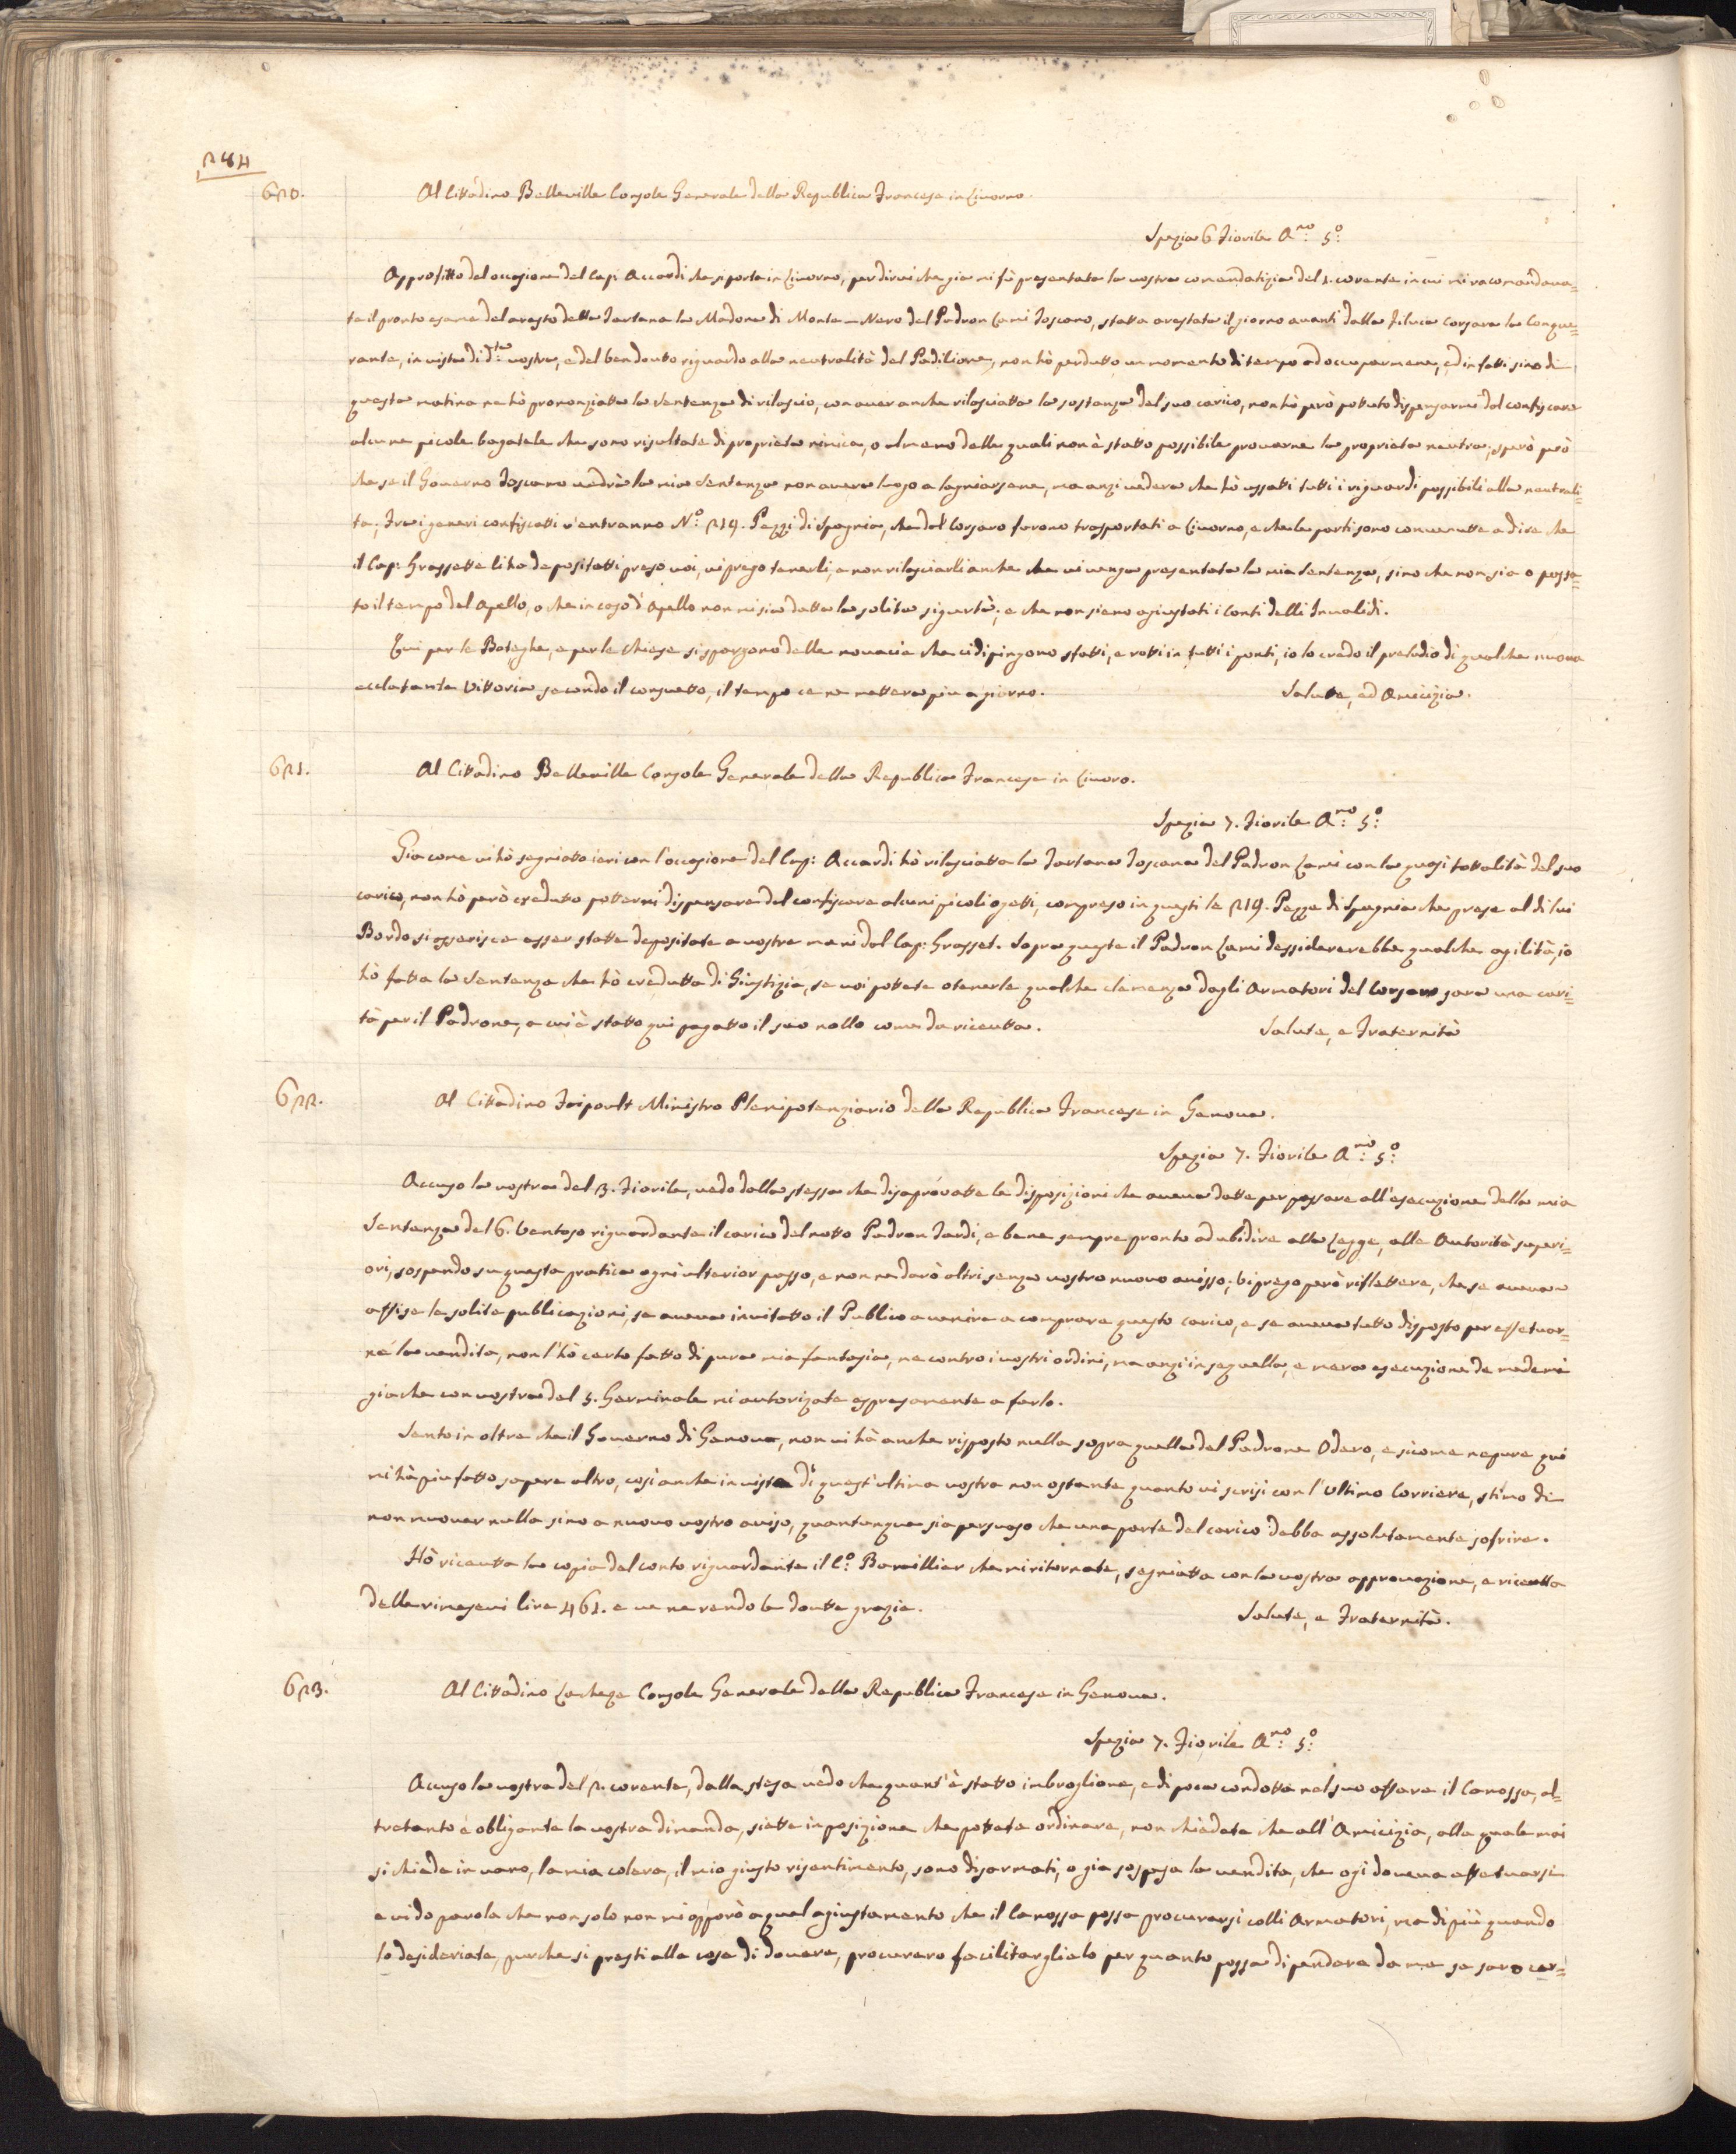 284
620.
Al Cittadino Belleville Console Generale della Republica Francese in Livorno.
Spezia 6 Fiorile A.no 5.o
Approfitto del occasione del Cap: Accardi che si porta in Livorno, per dirvi che gia mi fù presentata la vostra comendatizia del 1. corente in cui mi racomandava=
te il pronto esame del aresto della Tartana la Madona di Monte-Nero del Padron Lami Toscano, statta arestata il giorno avanti dalla Filuca Corsara la Conque=
rante, in vista di d.ta vostra, e del bendovuto riguardo alla neutralità del Padilione, non hò perdutto un momento di tempo ad occuparmene, ed in fatti sino di
questa matina ne hò prononziatta la Sentenza di rilascio, con aver anche rilasciatta la sostanza del suo carico, non hò però pottuto dispensarmi dal confiscare
alcune picole bagatele che sono risultate di proprieta nimica, o almeno delle quali non è statto possibile provarne la proprieta neutra; sperò però
che se il Governo Toscano vedrà la mia Sentenza non avera luogo a lagniarsene, ma anzi vedera che hò ussatti tutti i riguardi possibili alla neutrali=
ta; Fra i generi confiscatti v'entranno N.o 219. Pezzi di Spagnia, che dal Corsaro furono trasportati a Livorno, e che le parti sono convenutte a dire che
il Cap: Grassette li ha depositatti preso voi, vi prego tenerli, e non rilasciarli anche che vi venga presentata la mia Sentenza, sino che non sia o passa=
to il tempo del Apello, o che in caso d'Apello non mi sia datta la solita sigurtà; e che non sieno agiustati i Conti delli Invalidi.
Qui per le Boteghe, e per le Chiese si sparzono delle novacie che ci dipingono sfatti, e rotti in tutti i ponti, io lo credo il preludio di qualche nuova
eclatante Vittoria secondo il consuetto, il tempo ce ne mettera piu a giorno. Salutte, ed Amicizia.
621.
Al Cittadino Belleville Console Generale della Republica Francese in Livoro.
Spezia 7. Fiorile A.no 5.o
Gia come vi hò segniatto ieri con l'occasione del Cap: Accardi hò rilasciatta la Tartana Toscana del Padron Lami con la quasi tottalità del suo
carico, non hò però credutto pottermi dispensare del confiscare alcuni picoli ogetti, compreso in questi le 219. Pezze di Spagnia che prese al di lui
Bordo si asserisce esser statte depositate a vostre mani dal Cap: Grasset. Sopra queste il Padron Lami dessidererebbe qualche agilità, io
hò fatta la Sentenza che hò credutta di Giustizia, se voi pottete otenerle qualche clemenza dagli Armatori del Corsaro sara una cari=
tà per il Padrone, a cui è statto qui pagatto il suo nollo come da ricevtta. Salute, e Fraternità
622.
Al Cittadino Faipoult Ministro Plenipotenziario della Republica Francese in Genova.
Spezia 7. Fiorile A.no 5.o
Accuso la vostra del 3. Fiorile, vedo dalla stessa che disaprovatte le disposizioni che aveva datte per passare all'esecuzione della mia
Sentenza del 6. Ventoso riguardante il carico del notto Padron Tardi, e bene sempre pronto ad ubidire alla Legge, alle Autorità superi=
ori, sospendo su questa pratica ogni ulterior passo, e non ne darò altri senza vostro nuovo avisso; Vi prego però riflettere, che se aveva
affise le solite publicazioni, se aveva invitatto il Publico a venire a comprare questo carico, e se aveva tutto disposto per effetuar=
ne la vendita, non l'hò certo fatto di pura mia fantasia, ne contro i vostri ordini, ma anzi in sequella, e mera esecuzione de medemi
giache con vostra del 5. Germinale mi autorizate espresamente a farlo.
Sento in oltre che il Governo di Genova, non vi hà anche risposto nulla sopra quella del Padrone Odero, e sicome nepure qui
mi hà piu fatto sapere altro, così anche in vista di quest'ultima vostra non ostante quanto vi scrisi con l'Ultimo Corriere, stimo di
non muover nulla sino a nuovo vostro aviso, quantunque sia persuaso che una parte del carico debba assolutamente sofrire.
Hò ricevtta la copia del conto riguardante il C.o Baraillier che mi ritornate, segniatta con la vostra approvazione, e ricevtta
delle rimesevi lire 461. e ve ne rendo le dovtte grazie. Salute, e Fraternità.
623.
Al Cittadino Lacheze Console Generale della Republica Francese in Genova.
Spezia 7. Fiorile A.no 5.o
Accuso la vostra del 2. corente, dalla stesa vedo che quant'è statto imbroglione, e di poca condotta nel suo affare il Canossa, al=
tretanto è obligante la vostra dimanda, siette in posizione che pottete ordinare, non chiedete che all'Amicizia, alla quale mai
si chiede in vano, la mia colera, il mio giusto risentimento, sono disarmati, o gia sospesa la vendita, che ogi doveva effetuarsi
e vi do parola che non solo non mi opporò a qual agiustamento che il Canossa possa procurarsi colli Armatori, ma di più quando
lo desideriate, purche si presti alle cose di dovere, procurero facilitarglielo per quanto possa dipendere da me se saro cer=